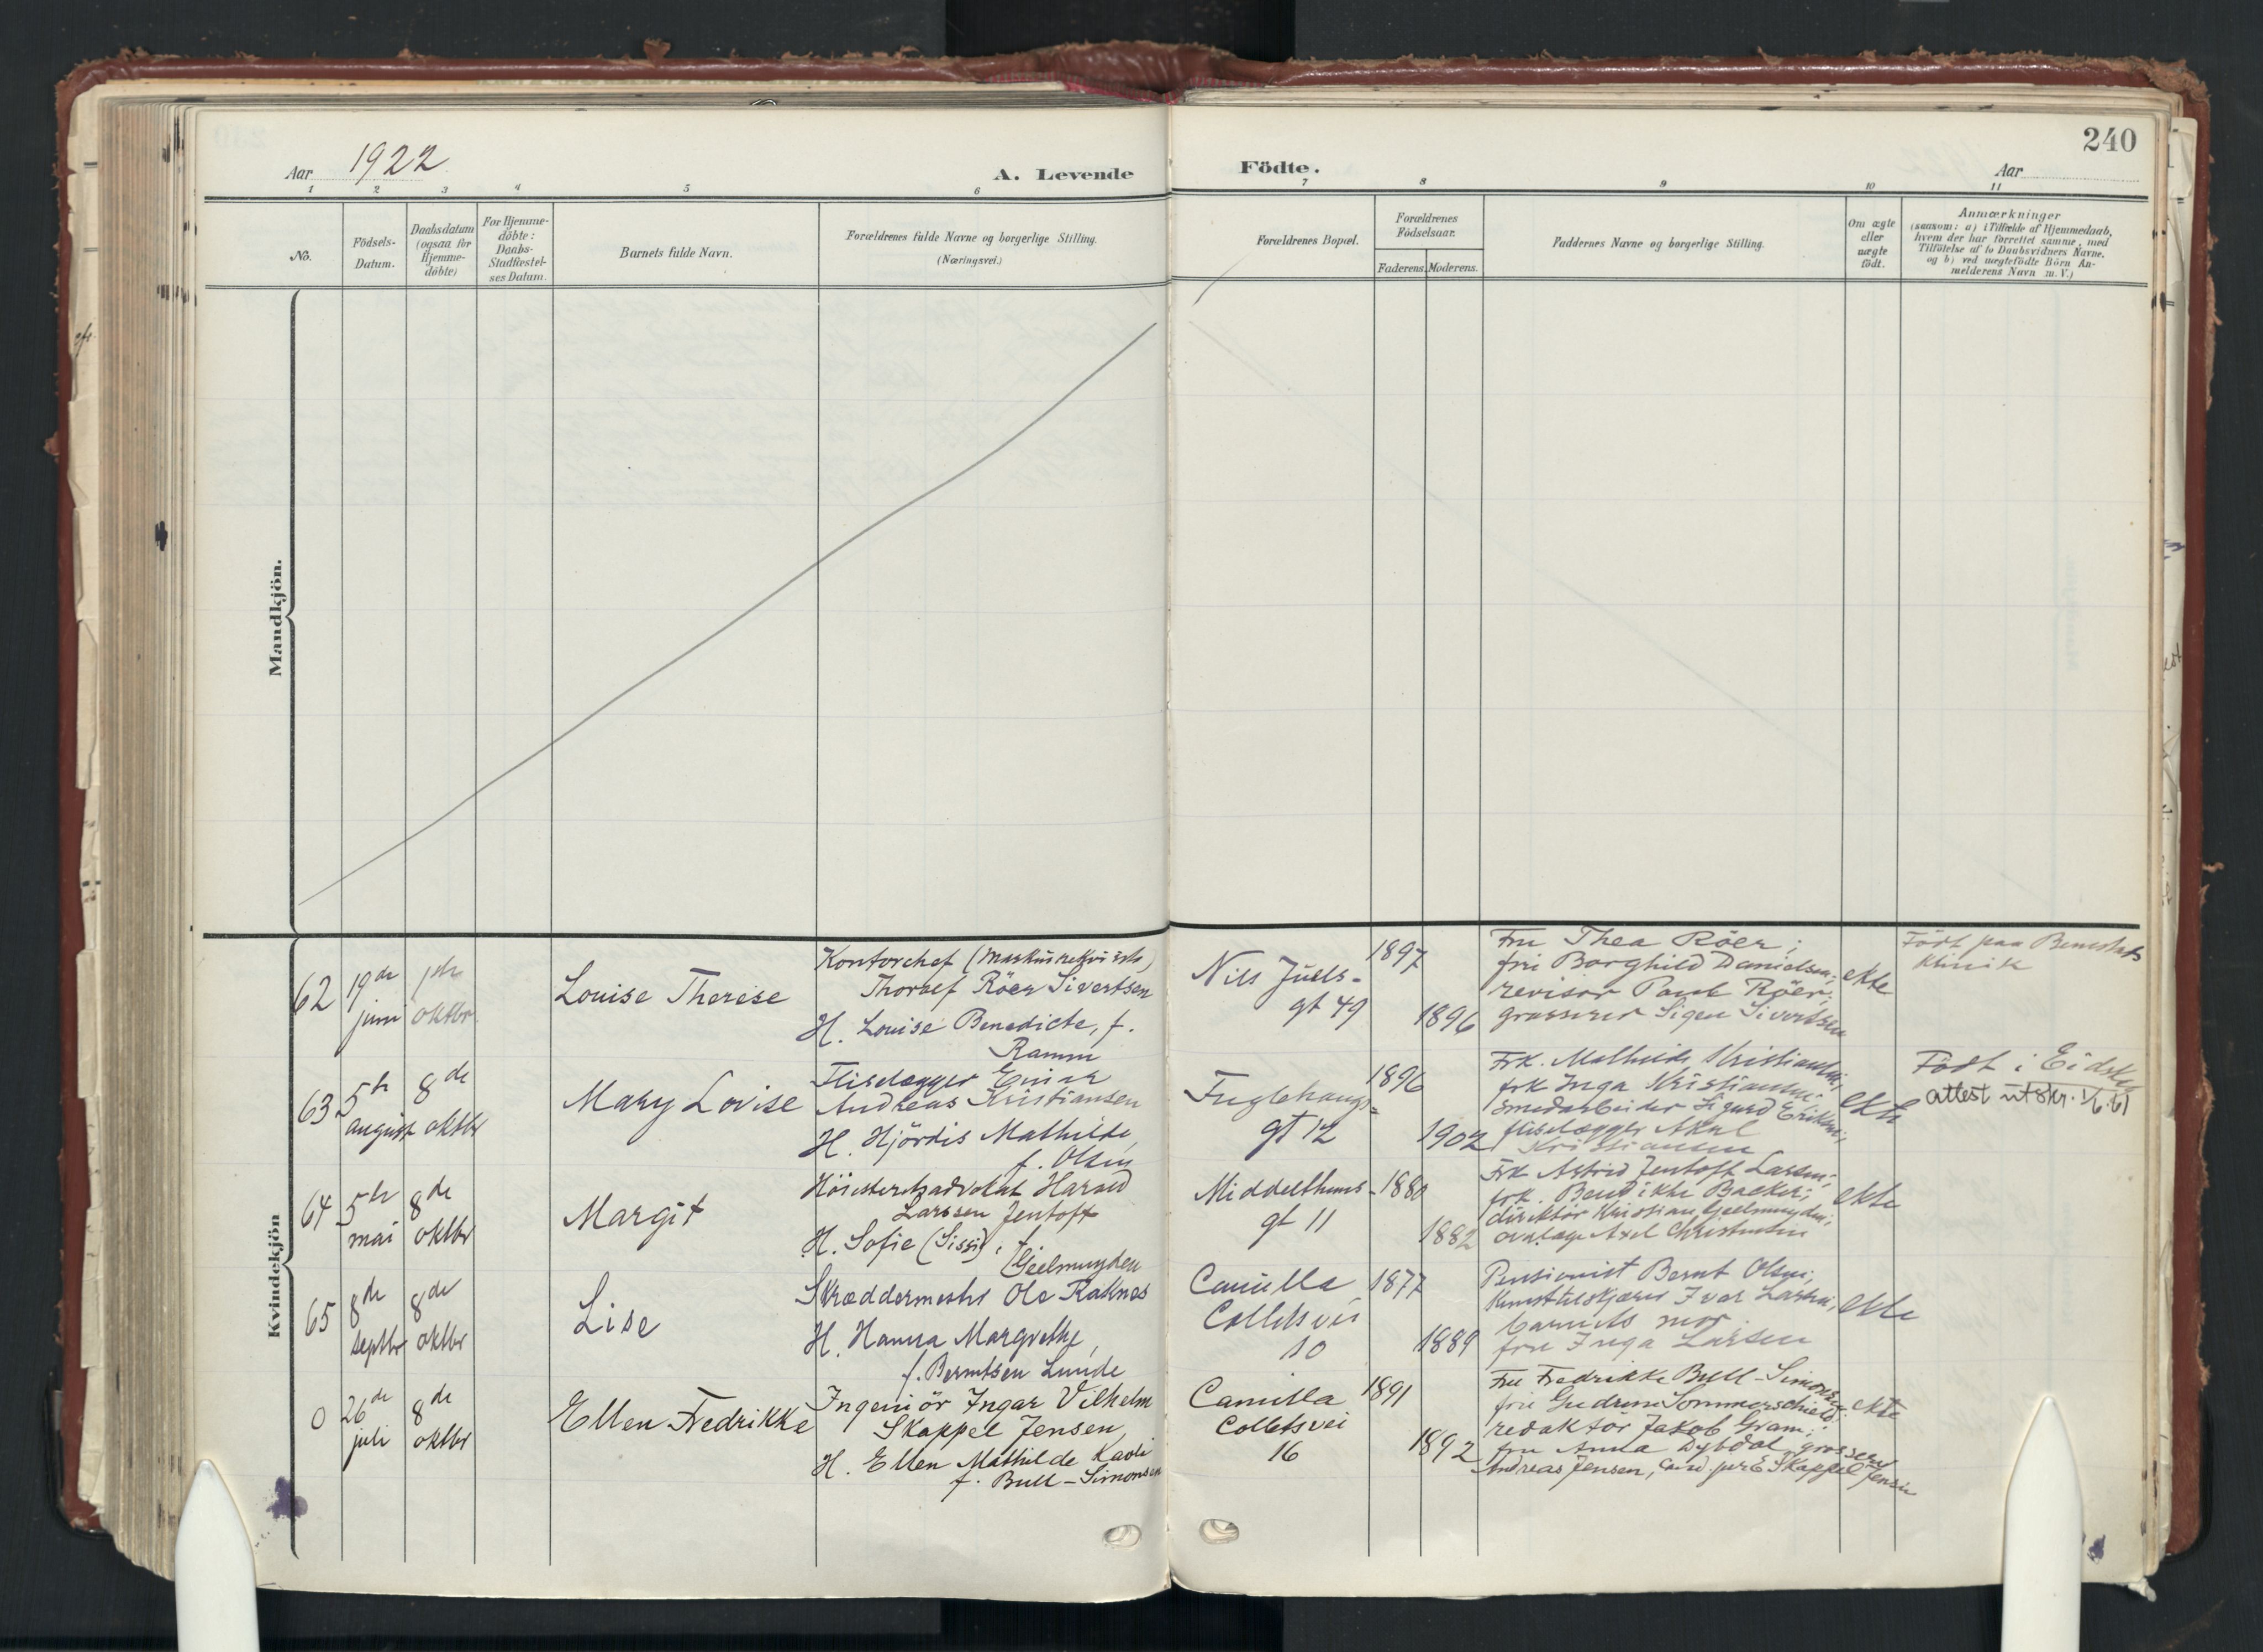 240
Aar 1922
A. Levende Födte.
Aar
1 2 3 4 5 6 7 8 9 10 11
No.
Födsels-
Datum.
Daabsdatum
(ogsaa for
Hjemme-
döbte)
For Hjemme-
döbte:
Daabs-
Stadfæstel-
ses Datum.
Barnets fulde Navn.
Forældrenes fulde Navne og borgerlige Stilling.
(Næringsvei.)
Forældrenes Bopæl.
Forældrenes
Födselsaar.
Faderens. Moderens.
Faddernes Navne og borgerlige Stilling.
Om ægte
eller
uægte
födt.
Anmærkninger
(saasom: a) i Tilfælde af Hjemmedaab,
hvem der har forrettet samme, med
Tilföielse af to Daabsvidners Navne,
og b) ved uægtefödte Börn An-
melderens Navn m. V.)
Mandkjön.
Kvindekjön
62
19de
juni
1ste
oktbr
Louise Therese
Kontorchef
Thorlef Röer Sivertsen
H. Louise Benedicte, f.
Ramm
Nils Juels-
gt 49
1897
1896
Fru Thea Röer;
fru Borghild Danielsen;
revisor Paul Röer;
grosserer Sigen Sivertsen
ekte
Födt paa
klinik
63
5te
august
8de
oktbr
Mary Lovise
Fliselægger Einar
Andreas Kristiansen
H. Hjördis Mathilde,
f. Olsen
Fuglehaugs-
gt 12
1896
1902
Frk. Mathilde Kristiansen;
frk Inga Kristiansen;
smedarbeider Sigurd Eriksen;
fliselægger
Kristiansen
ekte
Födt i
attest utskr. 1/6.61
64
5te
mai
8de
oktbr
Margit
Höiesteretsadvokat Harald
Larssen Jentoft
H. Sofie (Sissi), f.
Geelmuyden
Middelthuns-
gt 11
1880
1882
Frk Astrid Jentoft Larsen;
frk. Bendikte Backer;
direktör Kristian Geelmuyden;
Axel Christensen
ekte
65
8de
septbr
8de
oktbr
Lise
Skræddermester Ole Raknes
H. Hanna Margrethe,
f. Berntsen Lunde
Camilla
Colletsvei
10
1877
1889
Pensionist Bernt Olsen;
Ivar Larsen;
barnets mor
fru Inga Larsen
ekte
0
26de
juli
8de
oktbr
Ellen Fredrikke
Ingeniör Ingar Vilhelm
Skappel Jensen
H. Ellen Mathilde Kavli
f. Bull-Simonsen
Camilla
Colletsvei
16
1891
1892
Fru Fredrikke Bull-Simonsen;
fru Gudrun Sommerschield;
redaktör Jakob Gram;
fru Anna Dybdal grosserer
Andreas Jensen, cand. jur E Skappel Jensen
ekte